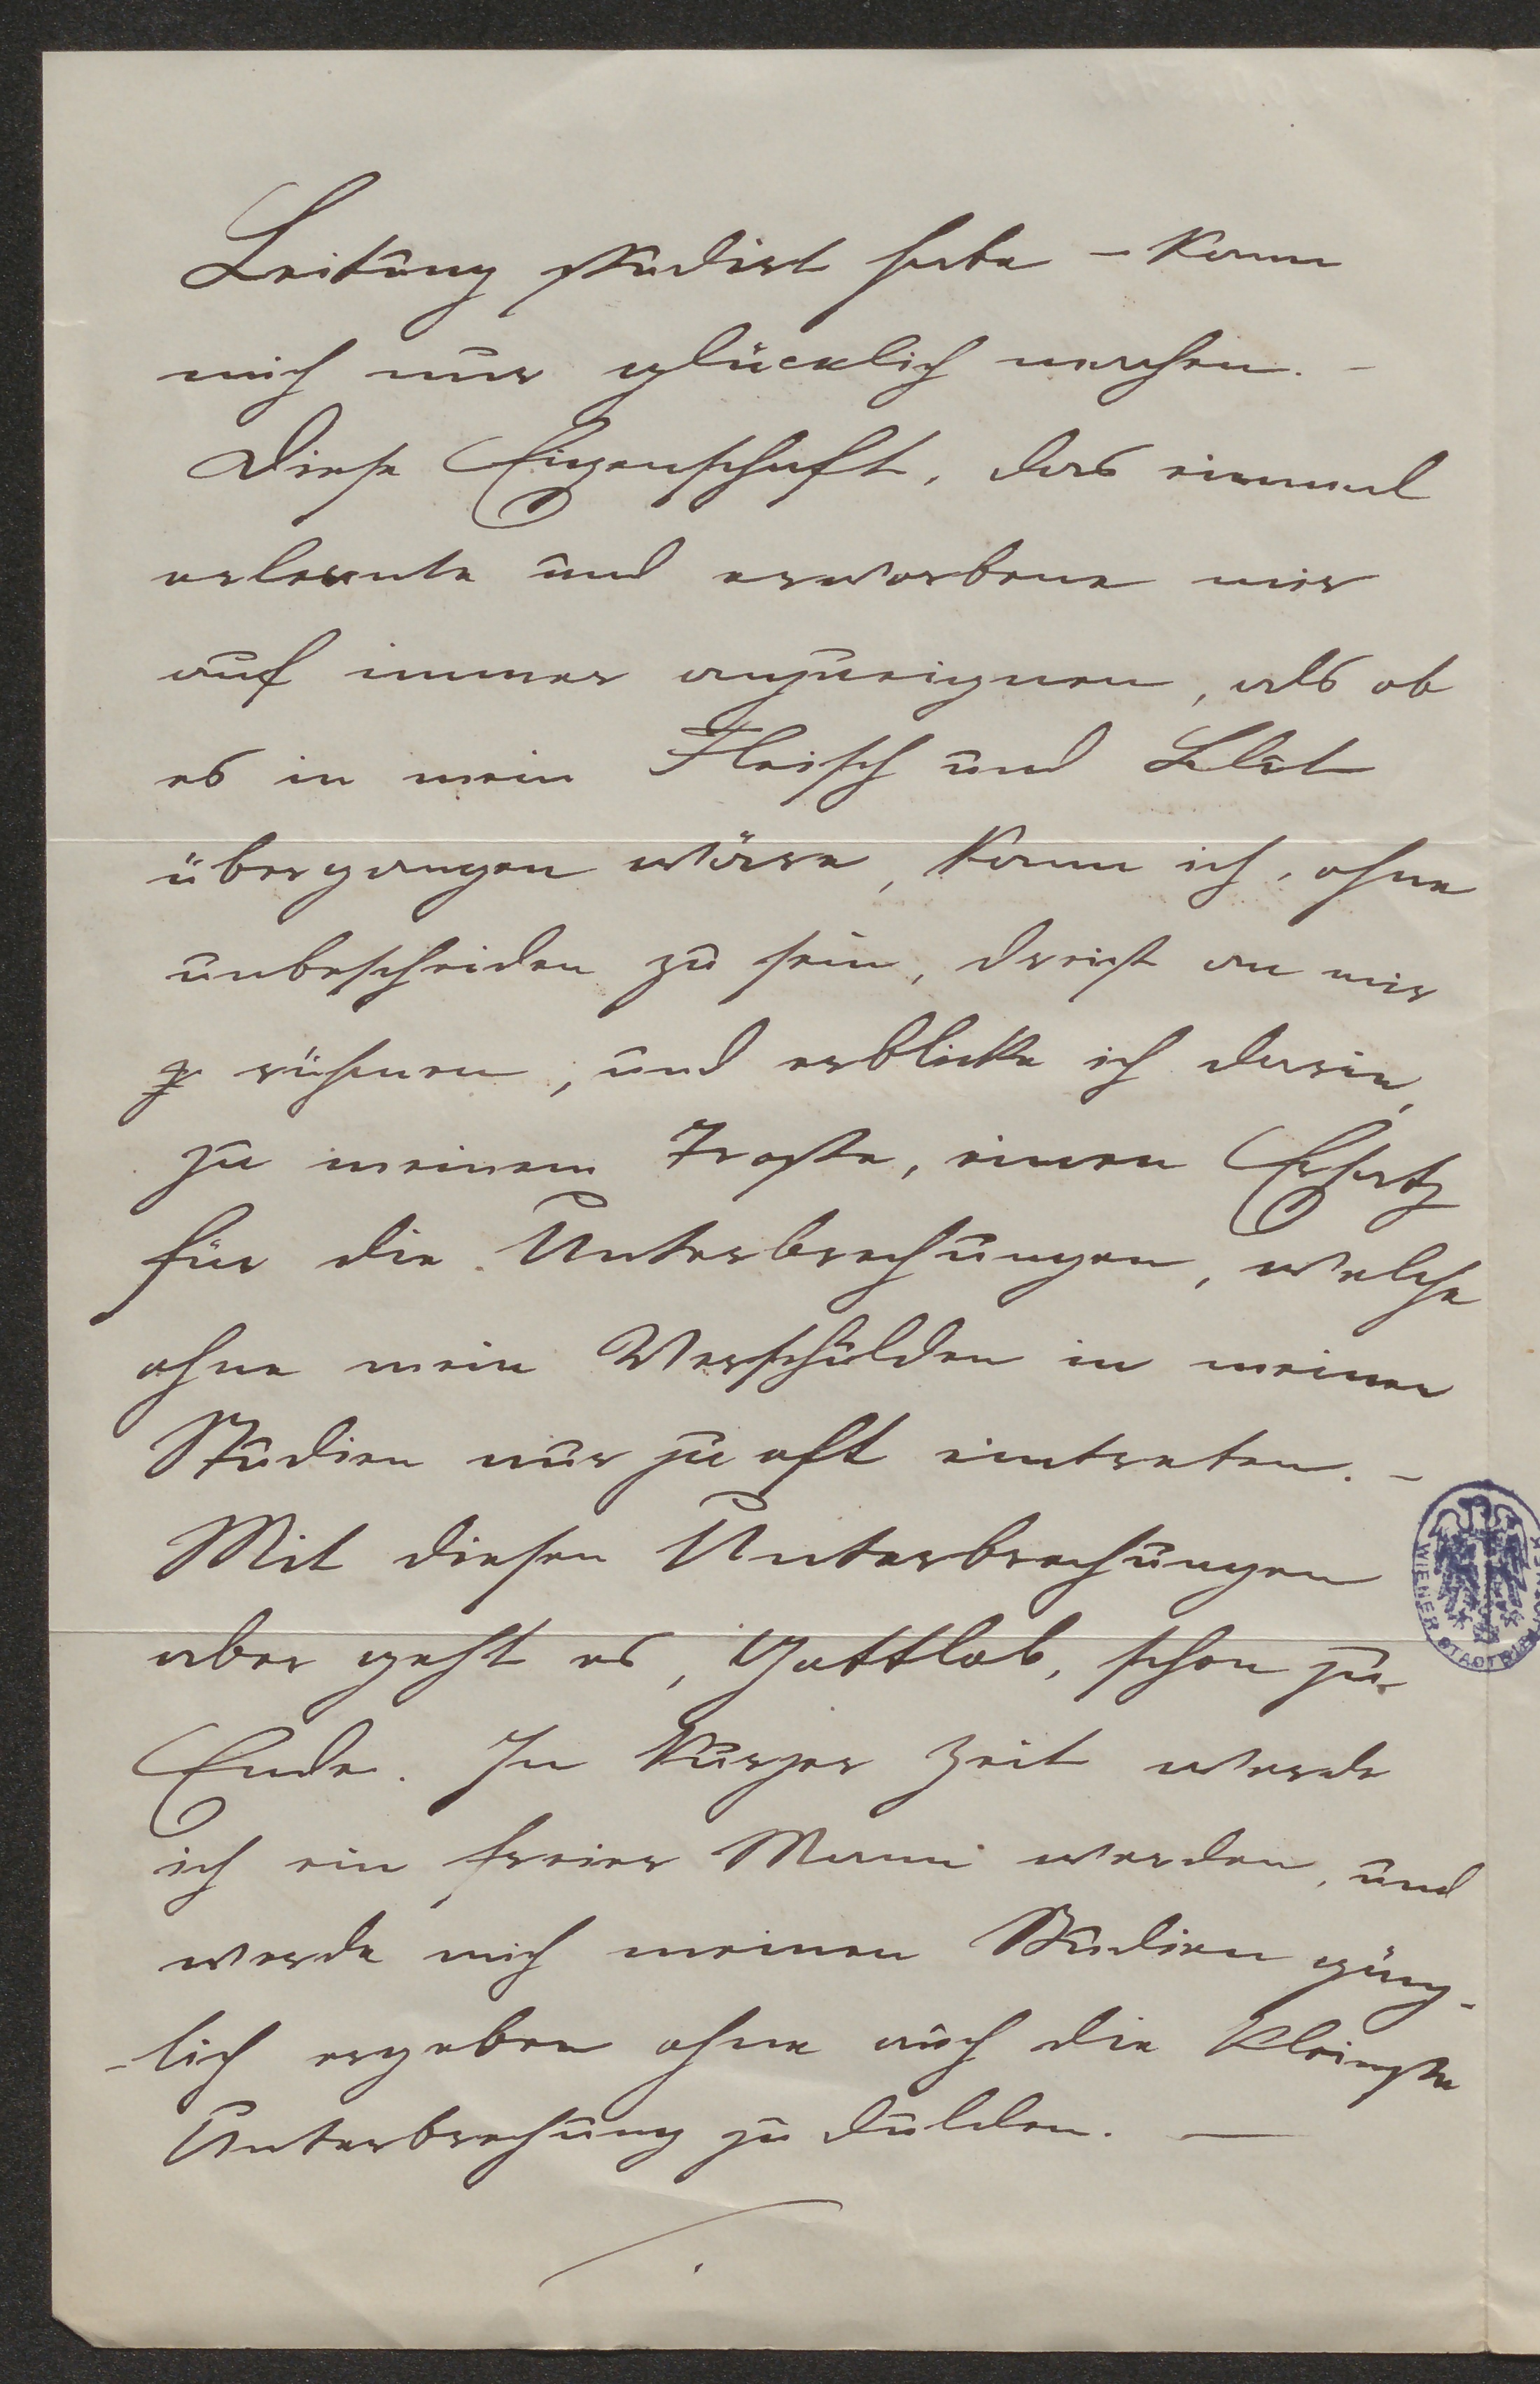 Leitung studirt habe – kann
mich nur glücklich machen. –
Diese Eigenschaft, das einmal
erlernte und erworbene mir
auf immer anzueignen, als ob
es in mein Fleisch und Blut
übergangen wäre, kann ich, ohne
unbescheiden zu sein, dreist an mir
rühmen, und erblicke ich darin,
zu meinem Troste, einen Ersatz
für die Unterbrechungen, welche
ohne mein Verschulden in meinen
Studien nur zu oft eintreten. –
Mit diesen Unterbrechungen
aber geht es, Gottlob, schon zu
Ende. In kurzer Zeit werde
ich ein freier Mann werden, und
werde mich meinen Studien gänz-
-lich ergeben ohne auch die kleinste
Unterbrechung zu dulden. —
WIENER STADTBI